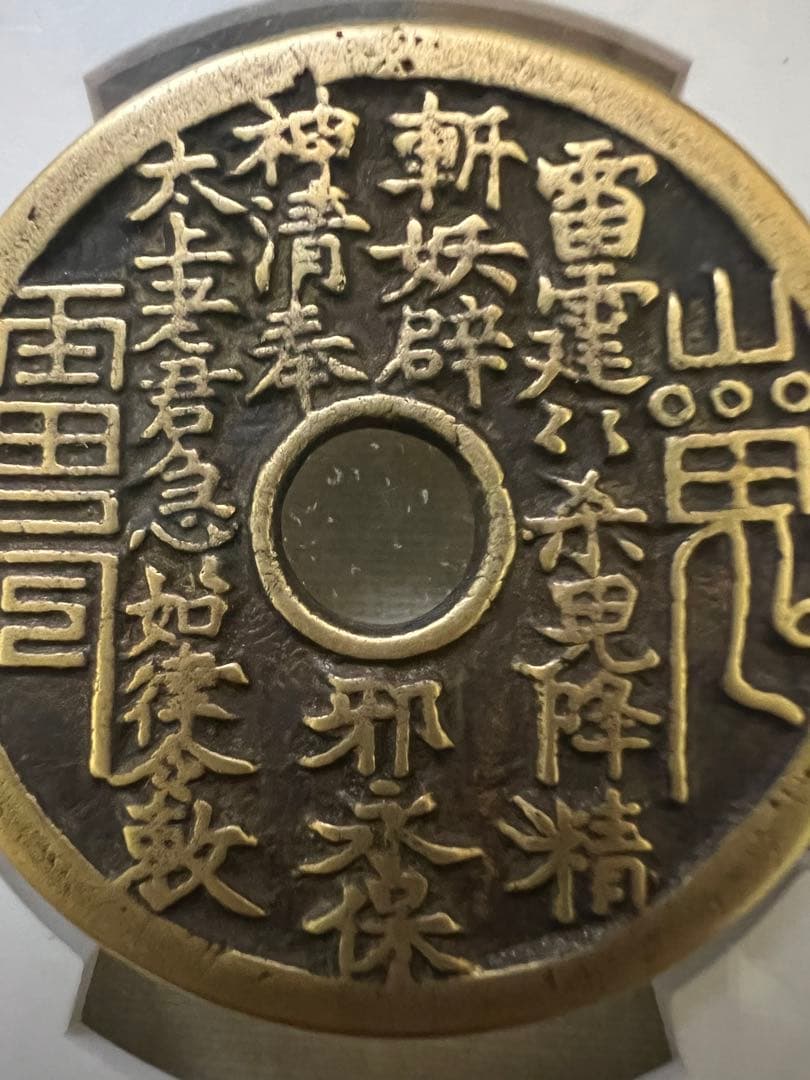 雷霆〻杀鬼降精
斬妖辟邪永保
神清奉
太上老君急如律令敕